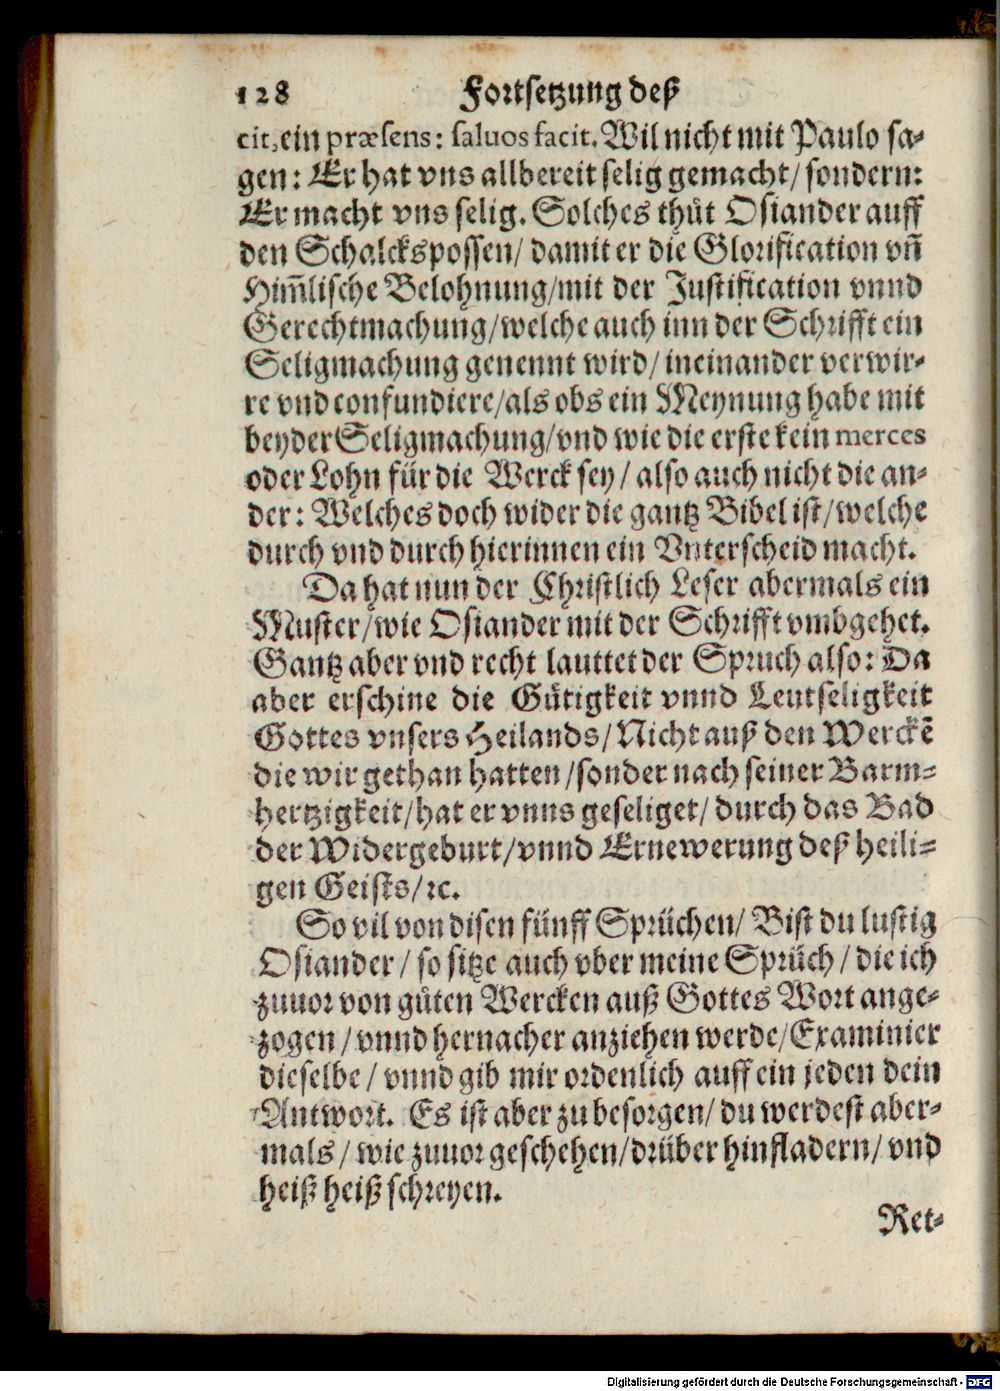 128 Fortsetzung deß
cit, ein præsens: saluos facit. Wil nicht mit Paulo sa-
gen: Er hat vns allbereit selig gemacht/ sondern:
Er macht vns selig. Solches thůt Osiander auff
den Schalckspossen/ damit er die Glorification vñ
Him̃lische Belohnung/ mit der Justification vnnd
Gerechtmachung/ welche auch inn der Schrifft ein
Seligmachung genennt wird/ ineinander verwir-
re vnd confundiere/ als obs ein Meynung habe mit
beyder Seligmachung/ vnd wie die erste kein merces
oder Lohn für die Werck sey/ also auch nicht die an-
der: Welches doch wider die gantz Bibel ist/ welche
durch vnd durch hierinnen ein Vnterscheid macht.
Da hat nun der Christlich Leser abermals ein
Muster/ wie Osiander mit der Schrifft vmbgehet.
Gantz aber vnd recht lauttet der Spruch also: Da
aber erschine die Gütigkeit vnnd Leutseligkeit
Gottes vnsers Heilands/ Nicht auß den Werckẽ
die wir gethan hatten/ sonder nach seiner Barm-
hertzigkeit/ hat er vnns geseliget/ durch das Bad
der Widergeburt/ vnnd Ernewerung deß heili-
gen Geists/ ꝛc.
So vil von disen fünff Sprüchen/ Bist du lustig
Osiander/ so sitze auch vber meine Sprüch/ die ich
zuuor von gůten Wercken auß Gottes Wort ange-
zogen/ vnnd hernacher anziehen werde/ Examinier
dieselbe/ vnnd gib mir ordenlich auff ein jeden dein
Antwort. Es ist aber zu besorgen/ du werdest aber-
mals/ wie zuuor geschehen/ drüber hinfladern/ vnd
heiß heiß schreyen.
Ret-
Digitalisierung gefördert durch die Deutsche Forschungsgemeinschaft - DFG